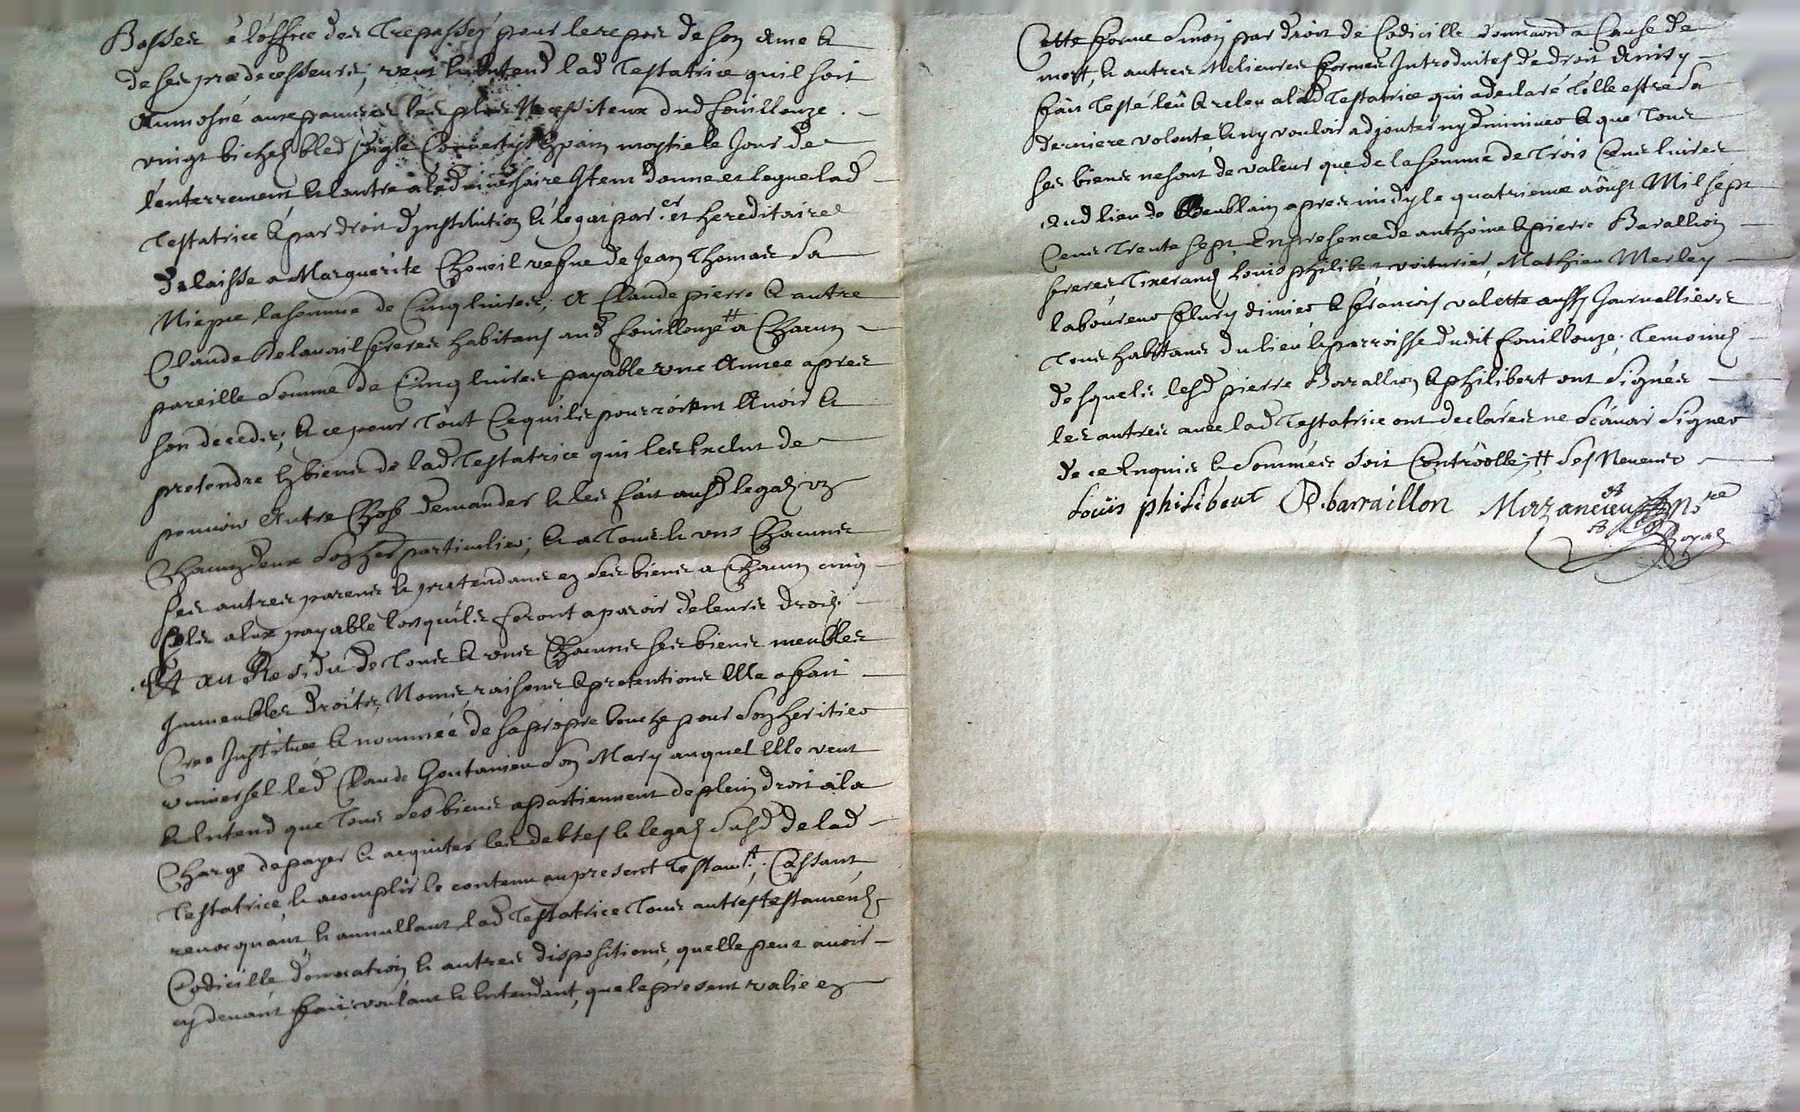 Basses & loffice des Trepassés pour le repos de son ame &
de ses predecesseurs; veut & entend lad Testatrice quil soit
Aumosné aux pauvres les plus Necessiteux dud fouillouze
vingt bichets bled seigle Convertys en pain moytie le Jour de
lenterrement & lautre a lad Item donne et legue lad
Testatrice & par droit dinstitution & legat par.er et hereditaire
delaisse a Marguerite vefve de Jean Thomas Sa
Niepce la somme de Cinq livres; A Claude pierre & autre
Claude Delavail freres habitans aud fouillouze # a Chacun
pareille Somme de Cinq livres payable une Année apres
son deceds; & ce pour Tout Ce quils pourroient Avoir &
pretendre es biens de lad Testatrice qui les Exclut de
pouvoir Autre Chose demander & les fait ausd legats
ses hers particuliers; & a Tous & uns Chacuns
ses autres parens & pretendans en ses biens a Chacun cinq
sols a eux payable lorsquils feront aparoir de leurs droits
Et au Residu de Tous & uns Chacuns ses biens meubles
Immeubles droits, Noms, raisons & pretentions Elle a fait
Cree Instituée & nommée de sa propre bouche pour Son heritier
universel led Claude Son Mary auquel Elle veut
& Entend que Tous ses biens apartiennent de plein droit a la
Charge de payer & acquiter les debtes & legats susd de lad
Testatrice & acomplir le contenu au present Testam.t; Cassant,
revocquant, & annullant lad Testatrice Tous autres testaments
Codicille donnation & autres dispositions, quelle peut avoir
cy devant fait voulant & Entendant, que le present valie en
Cette forme Sinon par droit de Codicille donnaond a Cause de
mort, & autres Melieures formes Introduites de droit Ainsy
fait Testé leû & releu a lad Testatrice qui a declaré telle estre Sa
derniere volonté & ny vouloir adjouter ny diminuer & que Tous
ses biens ne sont de valeur que de la somme de Trois Cens livres
Aud lieu de apres midy le quatrieme aôust Mil sept
Cens Trente sept En presence de anthoine & pierre Barallion
freres Tixerand, Louis philibert voiturier, Mathieu Merley
laboureur fleury dimier & francois valette aussy Journalliers
Tous habitans du lieu & parroisse dudit fouillouze, Temoins
desquels lesd pierre Barallion & philibert ont Signés
les autres avec lad Testatrice ont declarés ne Scavoir Signer
de ce Enquis & Sommés Soit Controollé; # Ses Neveus
Louis philibert P. barraillon N.re
Royal